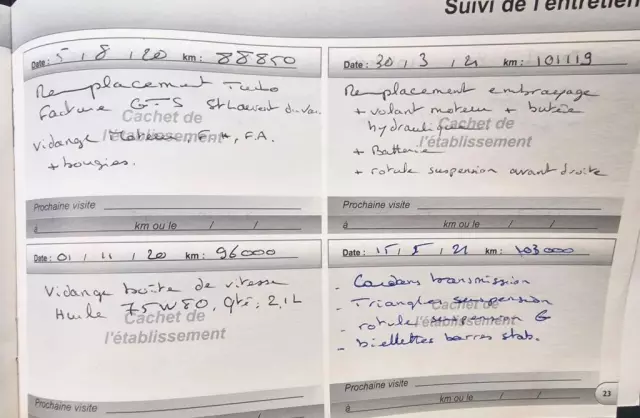 Suivi de l'entretien
Date : 5 / 8 / 20 km : 88850
Remplacement Turbo
Facture GTS St Laurent du Var
Cachet de
l'établissement
Vidange moteur F.H, F.A.
+ bougies.
Prochaine visite
à km ou le / /
Date : 30 / 3 / 21 km : 101119
Remplacement embrayage
+ volant moteur + butée
hydraulique
Cachet de
l'établissement
+ Batterie
+ rotule suspension avant droite
Prochaine visite
à km ou le / /
Date : 01 / 11 / 20 km : 96000
Vidange boîte de vitesse
Huile 75W80, Qté : 2,1L
Cachet de
l'établissement
Prochaine visite
à km ou le / /
Date : 15 / 5 / 21 km : 103000
- Cardans transmission
- Triangles suspension
Cachet de
- rotule suspension G
l'établissement
- biellettes barres stab.
Prochaine visite
à km ou le / /
23